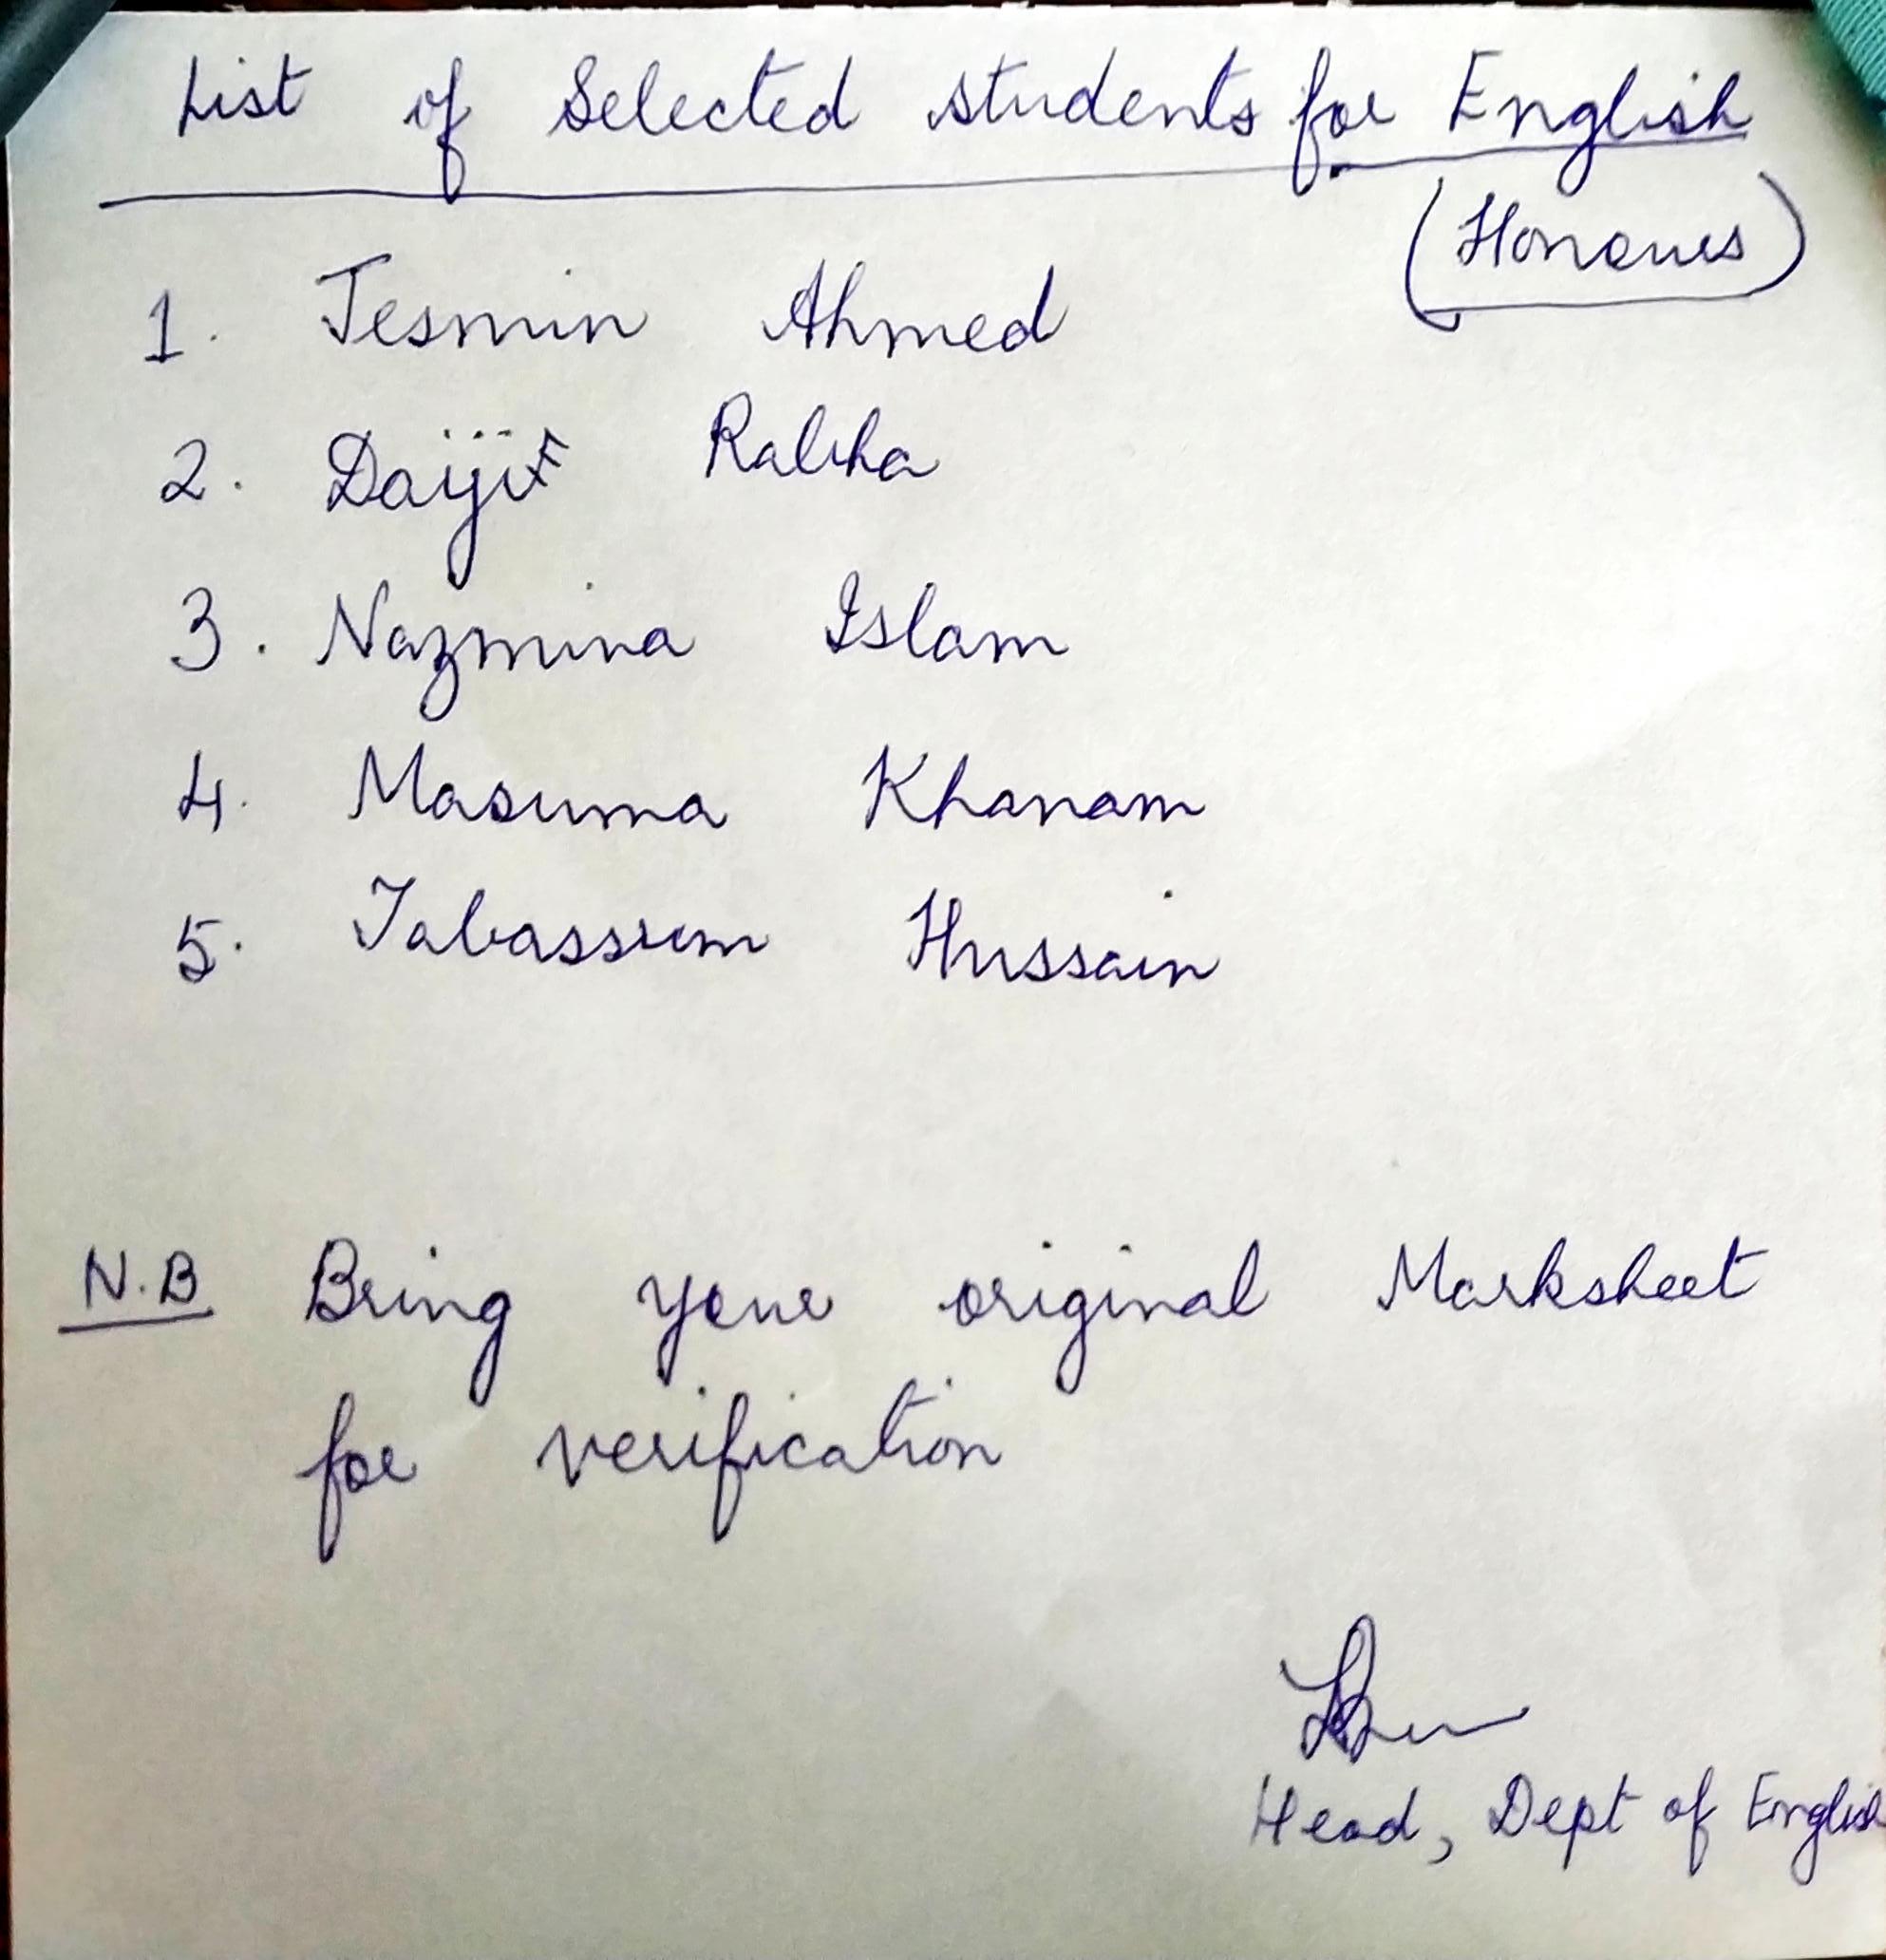 List of Selected students for English
(Honours)
1. Jesmin Ahmed
2. Rabha
3. Nazmina Islam
4. Masuma Khanam
5. Tabassum Hussain
N.B Bring your original Marksheet
for verification
Head, Dept of English